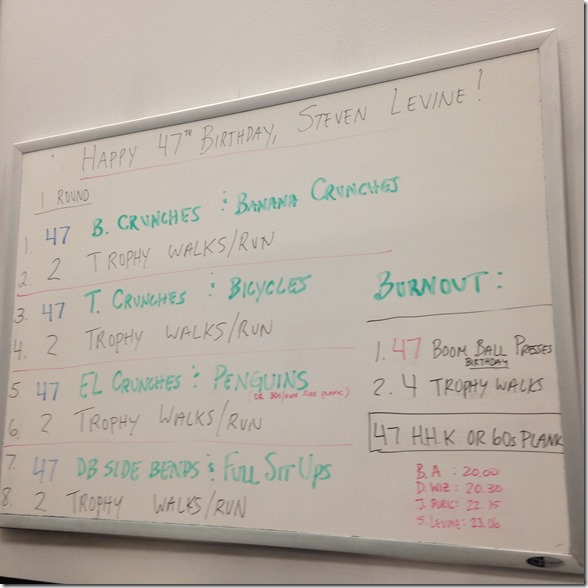 HAPPY 47TH BIRTHDAY, STEVEN LEVINE!
1 ROUND
1. 47 B. CRUNCHES & BANANA CRUNCHES
2. 2 TROPHY WALKS/RUN
3. 47 T. CRUNCHES & BICYCLES
4. 2 TROPHY WALKS/RUN
5. 47 EL CRUNCHES & PENGUINS
6. 2 TROPHY WALKS/RUN
7. 47 DB SIDE BENDS & FULL SIT UPS
8. 2 TROPHY WALKS/RUN
BURNOUT:
1. 47 BOOM BALL PRESSES
BIRTHDAY
2. 4 TROPHY WALKS
47 H.H.K OR 60s PLANK
B.A : 20.00
D. WIZ : 20.30
J. PURIC : 22.15
S. LEVINE : 23.06